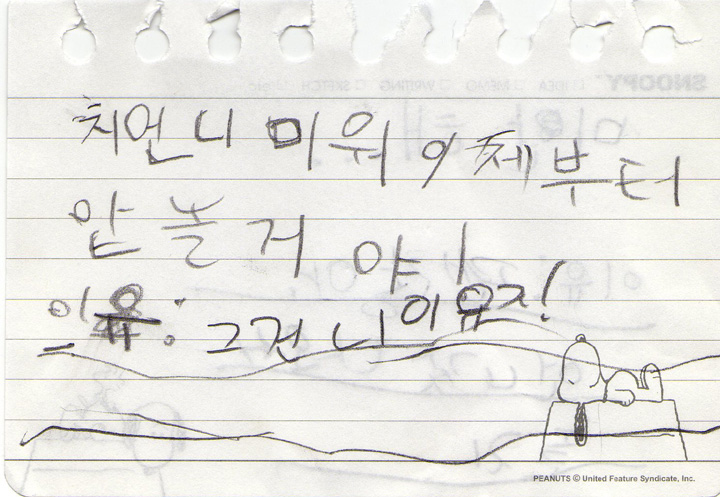 치언니 미워 이제부터
안 놀거야!
이유: 그건 니이유지!
PEANUTS © United Feature Syndicate, Inc.